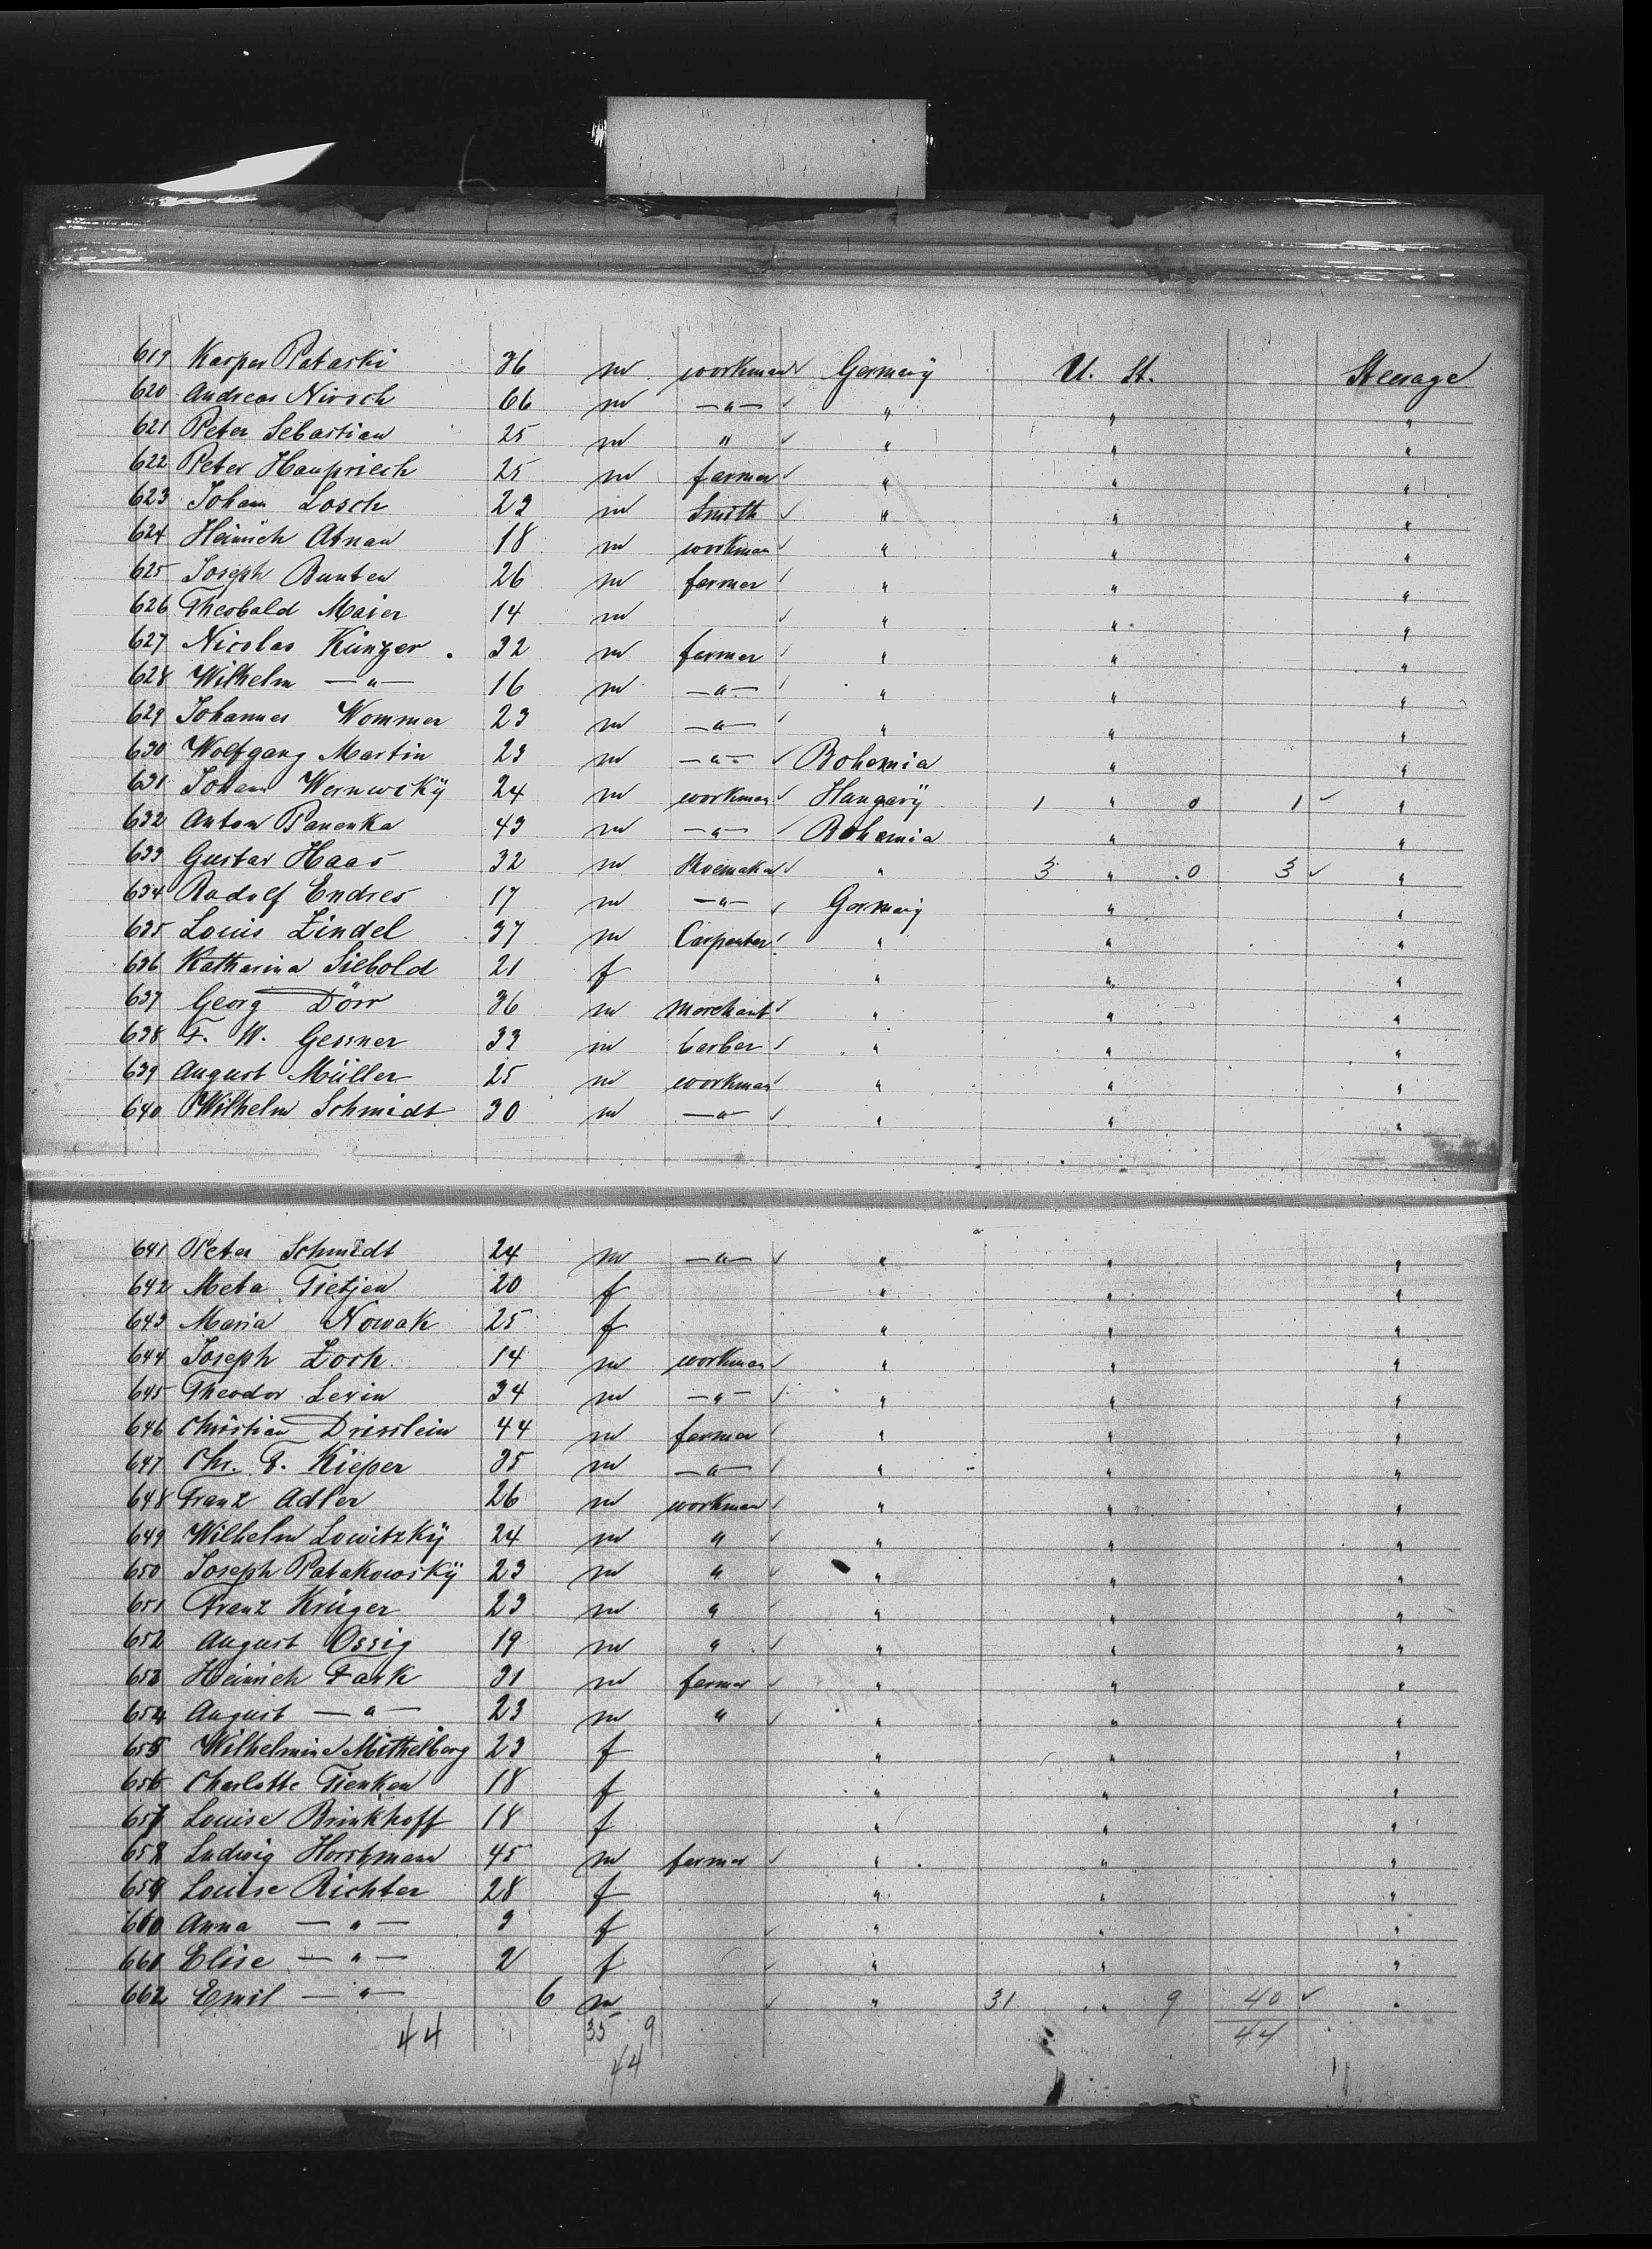 619 Kaspar Pataski 36 m workman Germany U. St. Steerage
620 Andreas Nirsch 66 m —"— " " "
621 Peter Sebastian 25 m " " " "
622 Peter Haupriech 25 m farmer " " "
623 Johann Losch 23 m Smith " " "
624 Heinrich Atnau 18 m workman " " "
625 Joseph Bunten 26 m farmer " " "
626 Theobald Maier 14 m " " "
627 Nicolas Künzer 32 m farmer " " "
628 Wilhelm —"— 16 m —"— " " "
629 Johannes Wommer 23 m —"— " " "
630 Wolfgang Martin 23 m —"— Bohemia " "
631 Johann 24 m workman Hungary 1 " 0 1 "
632 Anton Panenka 43 m —"— Bohemia " "
633 Gustav Haas 32 m Shoemaker " 3 " 0 3 "
634 Rudolf Endres 17 m —"— Germany " "
635 Louis Zindel 37 m Carpenter " " "
636 Katharina Siebold 21 f " " "
637 Georg Dörr 36 m Merchant " " "
638 F. W. Gessner 33 m barber " " "
639 August Müller 25 m workman " " "
640 Wilhelm Schmidt 30 m —"— " " "
641 Peter Schmidt 24 m —"— " " "
642 Meta Tietjen 20 f " " "
643 Maria Nowak 25 f " " "
644 Joseph Zoch 14 m workman " " "
645 Theodor Lexin 34 m —"— " " "
646 Christian Drisslein 44 m farmer " " "
647 Chr. F. Kieper 35 m —"— " " "
648 Franz Adler 26 m workman " " "
649 Wilhelm Lowitzkÿ 24 m " " " "
650 Joseph Patakowskÿ 23 m " " " "
651 Franz Krüger 23 m " " " "
652 August Ossig 19 m " " " "
653 Heinrich Fark 31 m farmer " " "
654 August —"— 23 m " " " "
655 Wilhelmine Mithelberg 23 f " " "
656 Charlotte Tienken 18 f " " "
657 Louise Brinkhoff 18 f " " "
658 Ludwig Horstmann 45 m farmer " " "
659 Louise Richter 28 f " " "
660 Anna —"— 3 f " " "
661 Elise —"— 2 f " " "
662 Emil —"— 6 m " 31 " 9 40 "
44 35 9 44
44